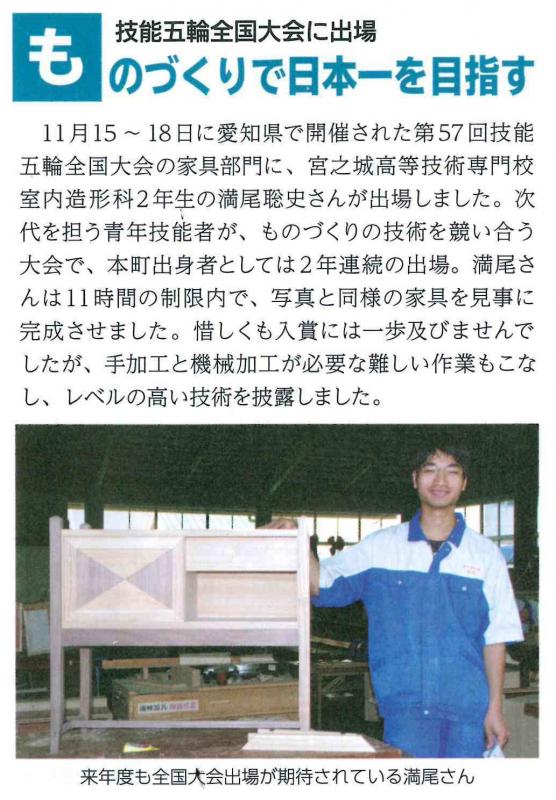 技能五輪全国大会に出場
ものづくりで日本一を目指す
11月15～18日に愛知県で開催された第57回技能
五輪全国大会の家具部門に、宮之城高等技術専門校
室内造形科2年生の満尾聡史さんが出場しました。次
代を担う青年技能者が、ものづくりの技術を競い合う
大会で、本町出身者としては2年連続の出場。満尾さ
んは11時間の制限内で、写真と同様の家具を見事に
完成させました。惜しくも入賞には一歩及びませんで
したが、手加工と機械加工が必要な難しい作業もこな
し、レベルの高い技術を披露しました。
来年度も全国大会出場が期待されている満尾さん